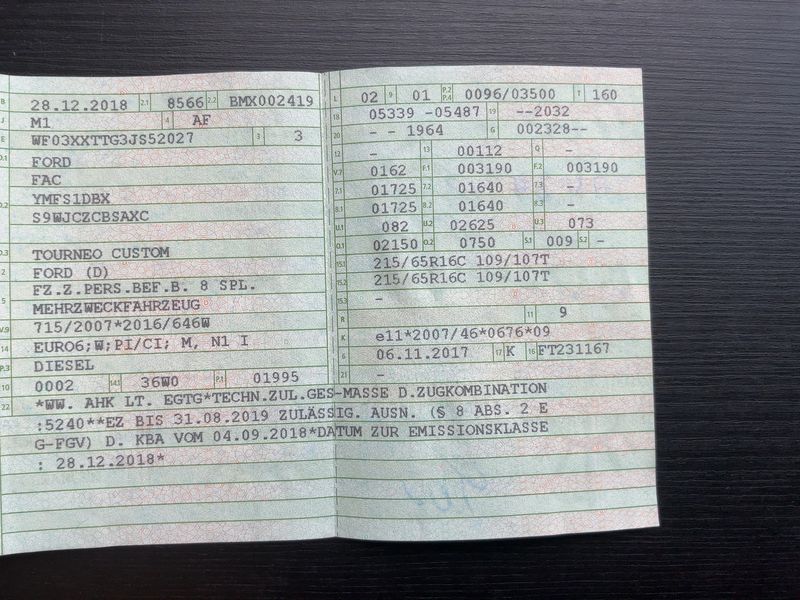 B 28.12.2018 2.1 8566 2.2 BMX002419
J M1 4 AF
E WF03XXTTG3JS52027 3 3
D.1 FORD
FAC
D.2 YMFS1DBX
S9WJCZCBSAXC
D.3 TOURNEO CUSTOM
2 FORD (D)
FZ.Z.PERS.BEF.B. 8 SPL.
5 MEHRZWECKFAHRZEUG
V.9 715/2007*2016/646W
14 EURO6;W;PI/CI; M, N1 I
P.3 DIESEL
10 0002 14.1 36W0 P.1 01995
L 02 9 01 P.2 P.4 0096/03500 T 160
18 05339 -05487 19 --2032
20 - - 1964 G 002328--
12 - 13 00112 Q -
V.7 0162 F.1 003190 F.2 003190
7.1 01725 7.2 01640 7.3 -
8.1 01725 8.2 01640 8.3 -
U.1 082 U.2 02625 U.3 073
O.1 02150 O.2 0750 S.1 009 S.2 -
15.1 215/65R16C 109/107T
15.2 215/65R16C 109/107T
15.3 -
R 11 9
K e11*2007/46*0676*09
6 06.11.2017 17 K 16 FT231167
21 -
22 *WW. AHK LT. EGTG*TECHN.ZUL.GES-MASSE D.ZUGKOMBINATION
:5240**EZ BIS 31.08.2019 ZULÄSSIG. AUSN. (§ 8 ABS. 2 E
G-FGV) D. KBA VOM 04.09.2018*DATUM ZUR EMISSIONSKLASSE
: 28.12.2018*